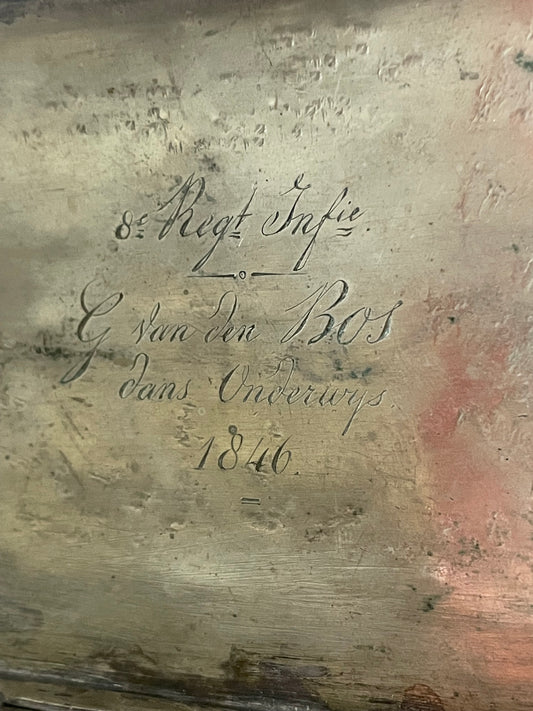 8e Regt Infie.
G van den Bos
dans Onderwys.
1846.